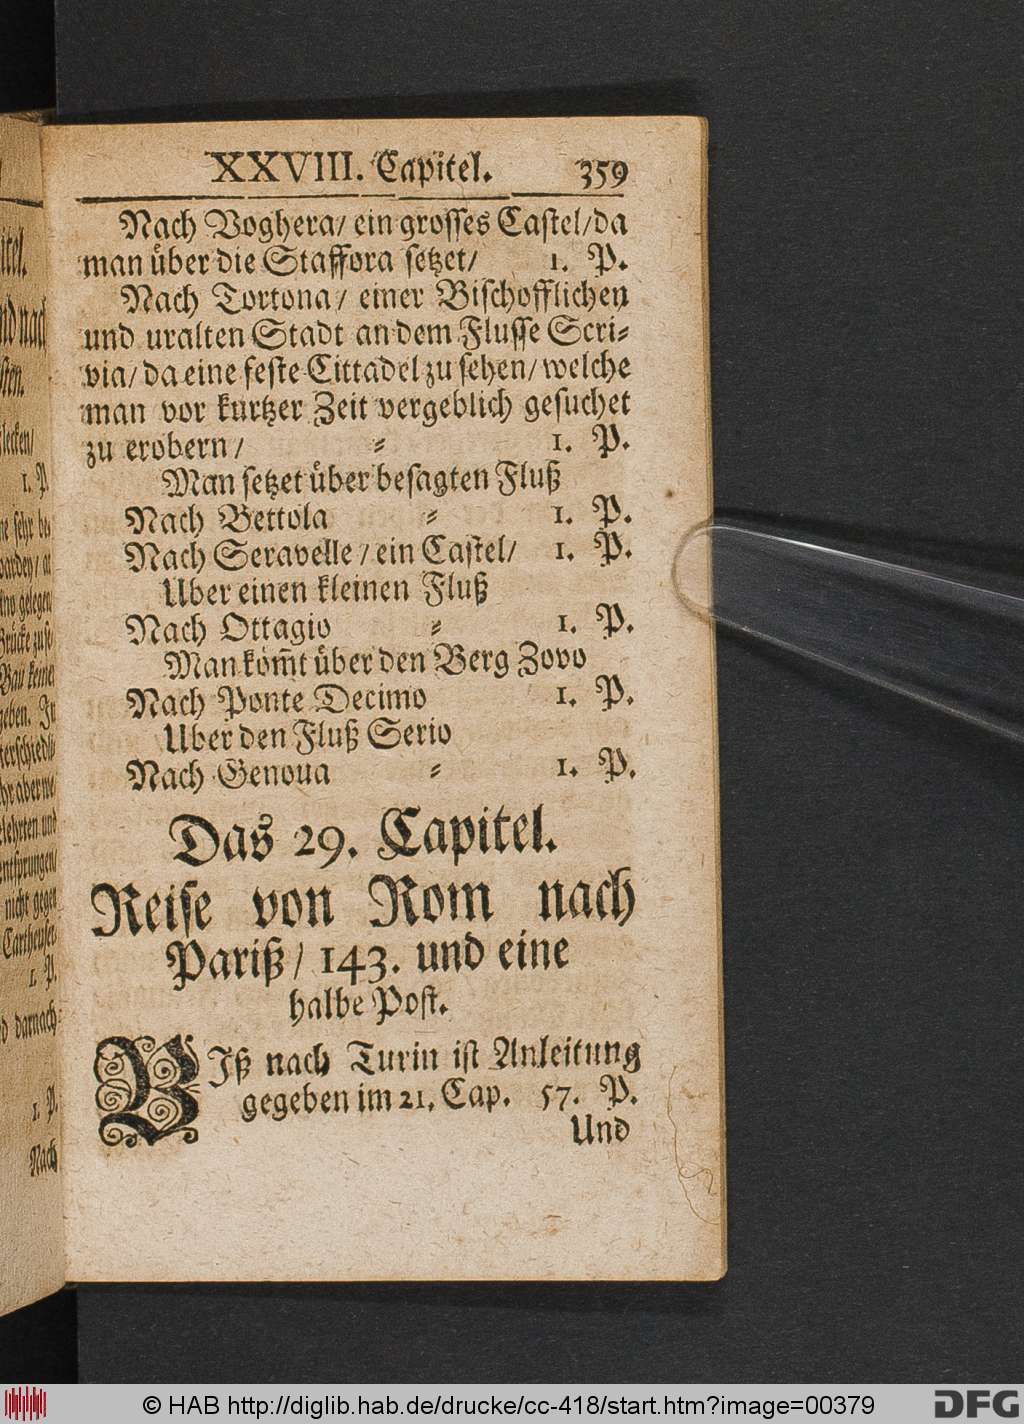 XXVIII. Capitel. 359
Nach Voghera/ ein grosses Castel/ da
man über die Staffora setzet/ 1. P.
Nach Tortona/ einer Bischofflichen
und uralten Stadt an dem Flusse Scri-
via/ da eine feste Cittadel zu sehen/ welche
man vor kurtzer Zeit vergeblich gesuchet
zu erobern/ = 1. P.
Man setzet über besagten Fluß
Nach Bettola = 1. P.
Nach Seravelle/ ein Castel/ 1. P.
Uber einen kleinen Fluß
Nach Ottagio = 1. P.
Man kom̃t über den Berg Zovo
Nach Ponte Decimo 1. P.
Uber den Fluß Serio
Nach Genoua = 1. P.
Das 29. Capitel.
Reise von Rom nach
Pariß/ 143. und eine
halbe Post.
BIß nach Turin ist Anleitung
gegeben im 21. Cap. 57. P.
Und
© HAB http://diglib.hab.de/drucke/cc-418/start.htm?image=00379
DFG